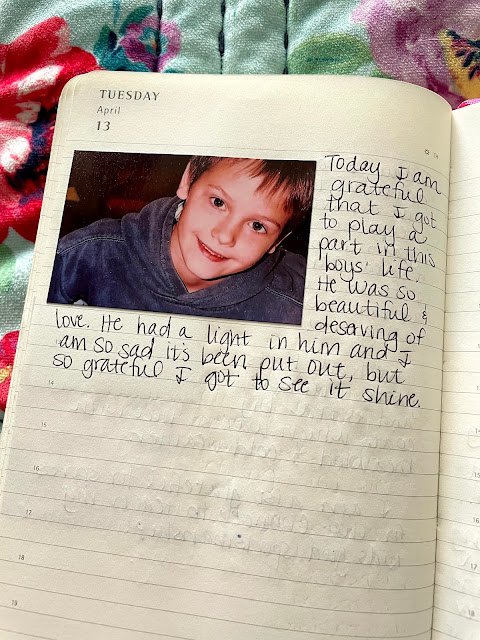 TUESDAY
April
13
Today I am
grateful
that I got
to play a
part in this
boys' life.
He was so
beautiful &
deserving of
love. He had a light in him and I
am so sad it's been put out, but
so grateful I got to see it shine.
14
15
16
17
18
19
17
18